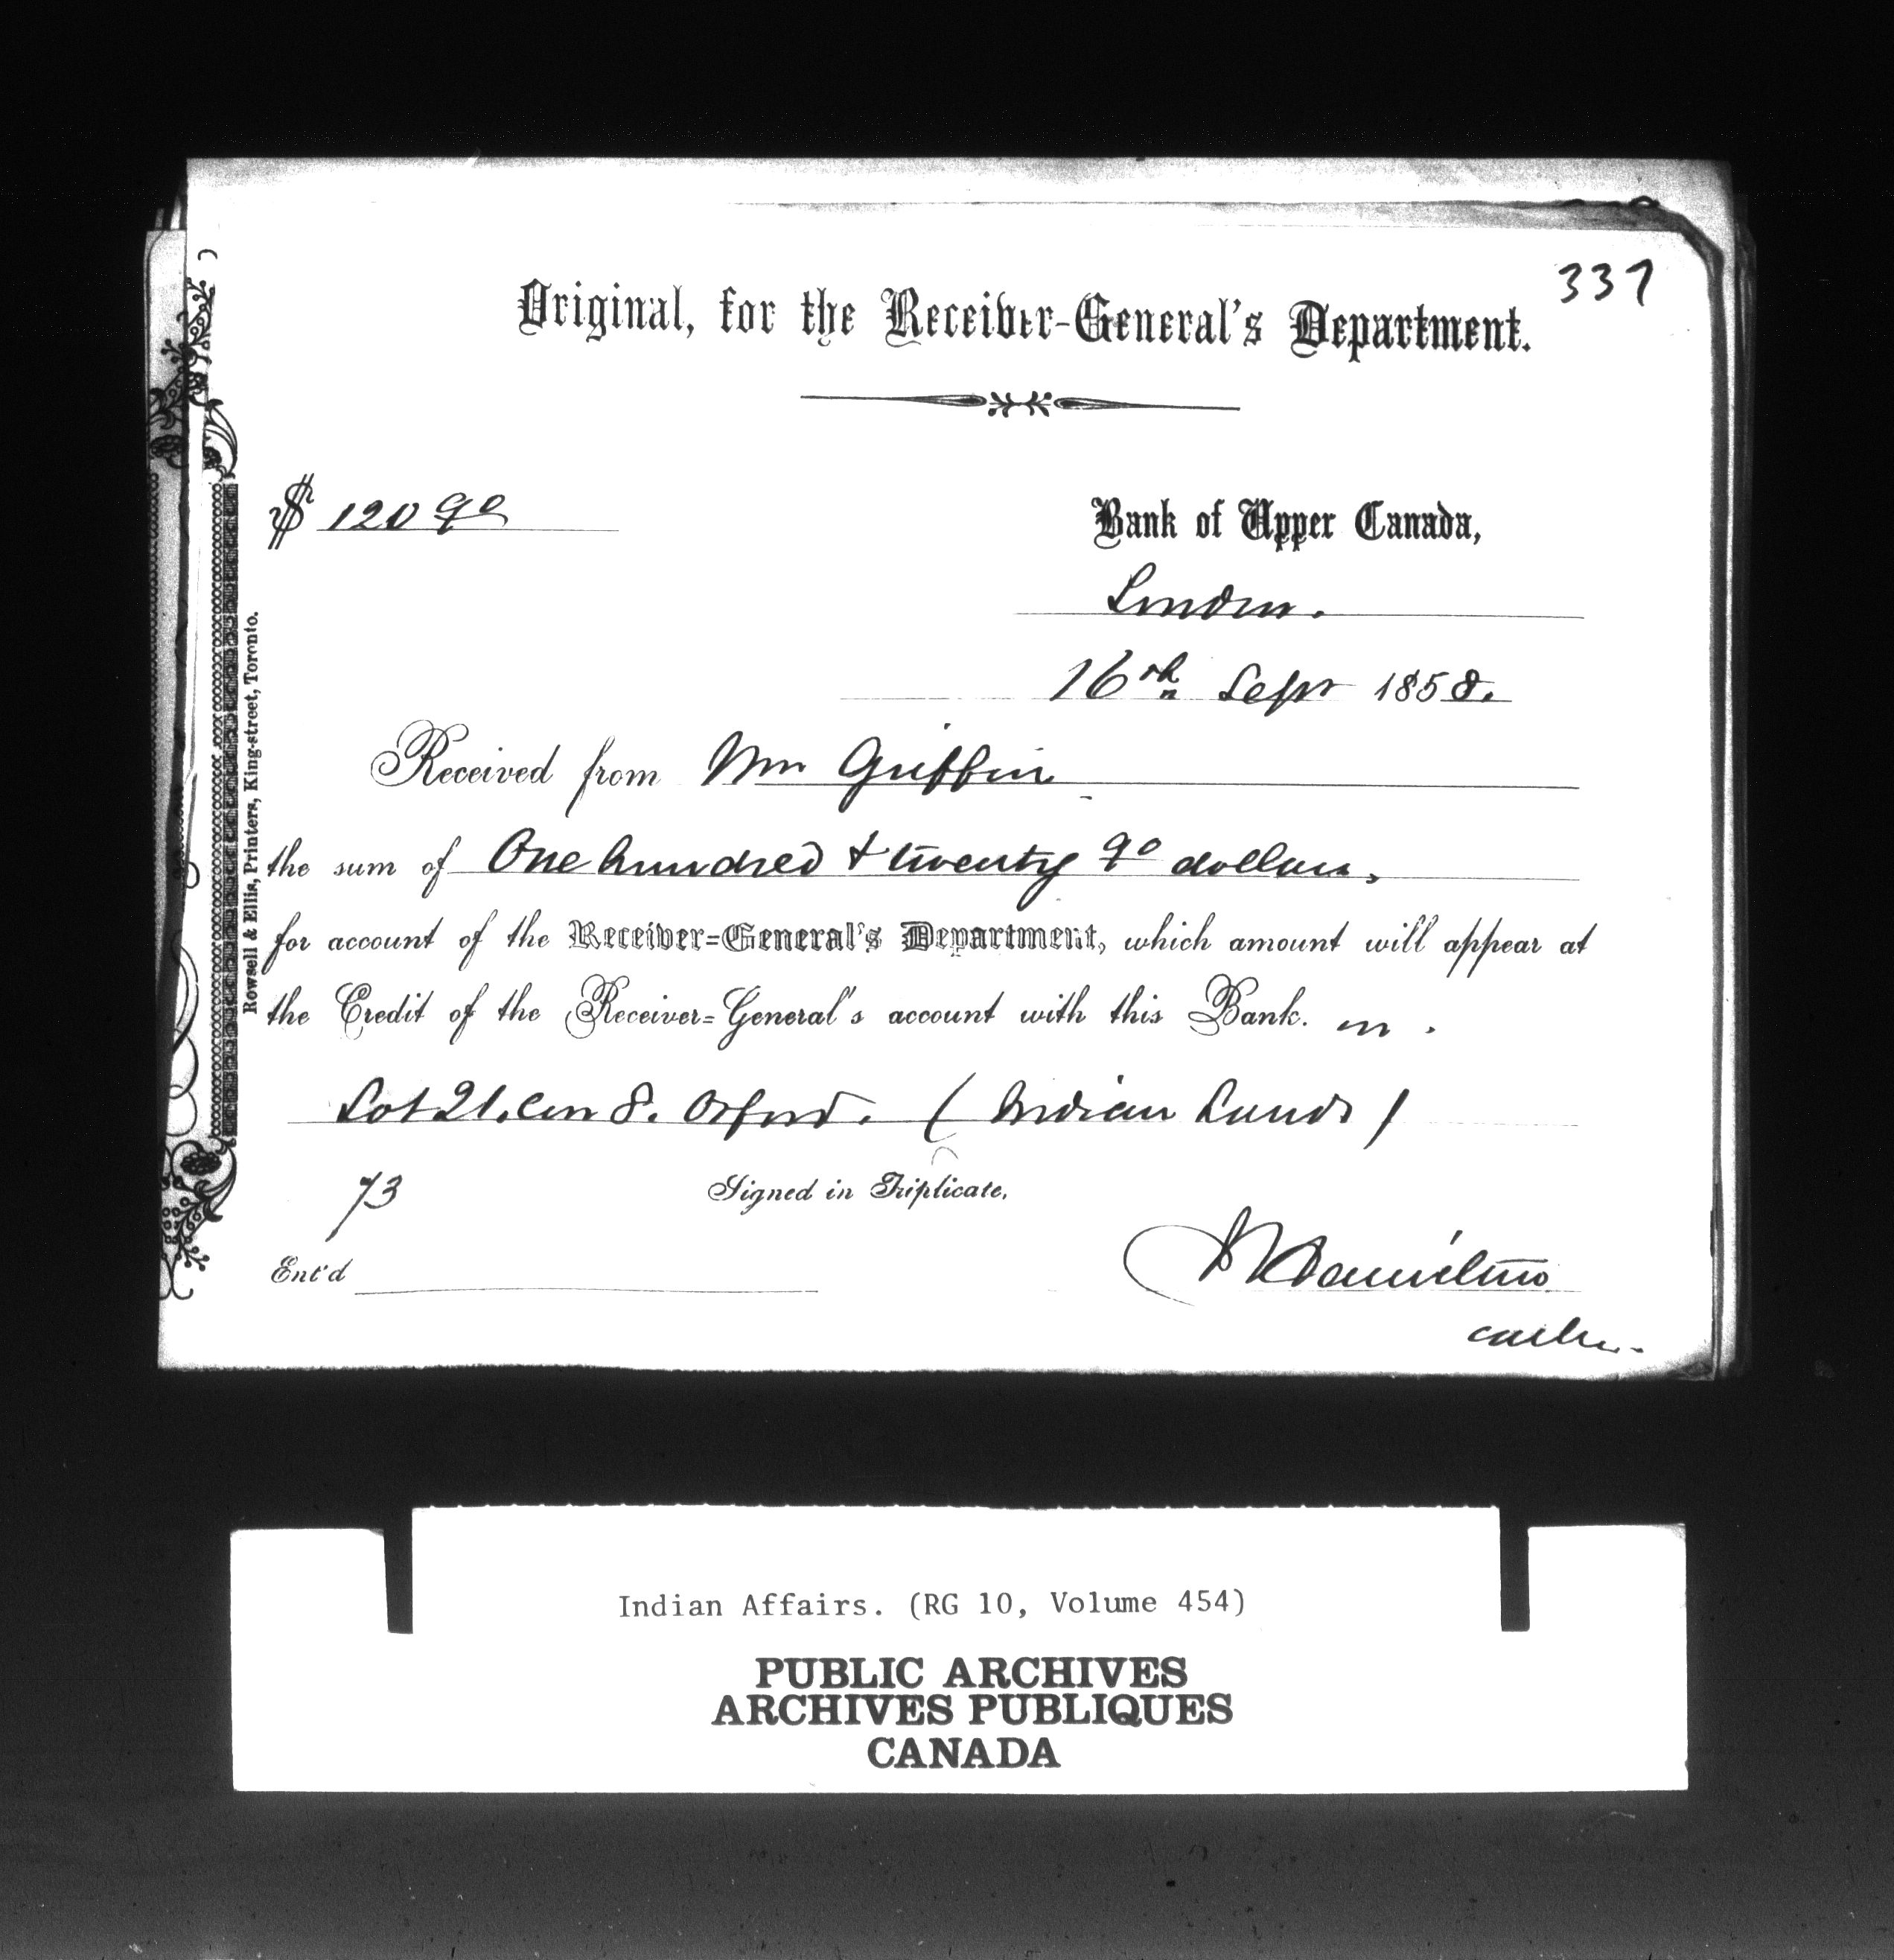 337
Original, for the Receiver-General's Department.
$ 120 90
Bank of Upper Canada,
London.
16th Sept 1858.
Received from Wm Griffin
the sum of One hundred + twenty 90 dollars,
for account of the Receiver=General's Department, which amount will appear at
the Credit of the Receiver=General's account with this Bank. on .
Lot 21. Con 8. Orford. ( Indian Lands )
73
Signed in Triplicate,
Ent'd
Hamilton
cashr.
Rowsell & Ellis, Printers, King-street, Toronto.
Indian Affairs. (RG 10, Volume 454)
PUBLIC ARCHIVES
ARCHIVES PUBLIQUES
CANADA